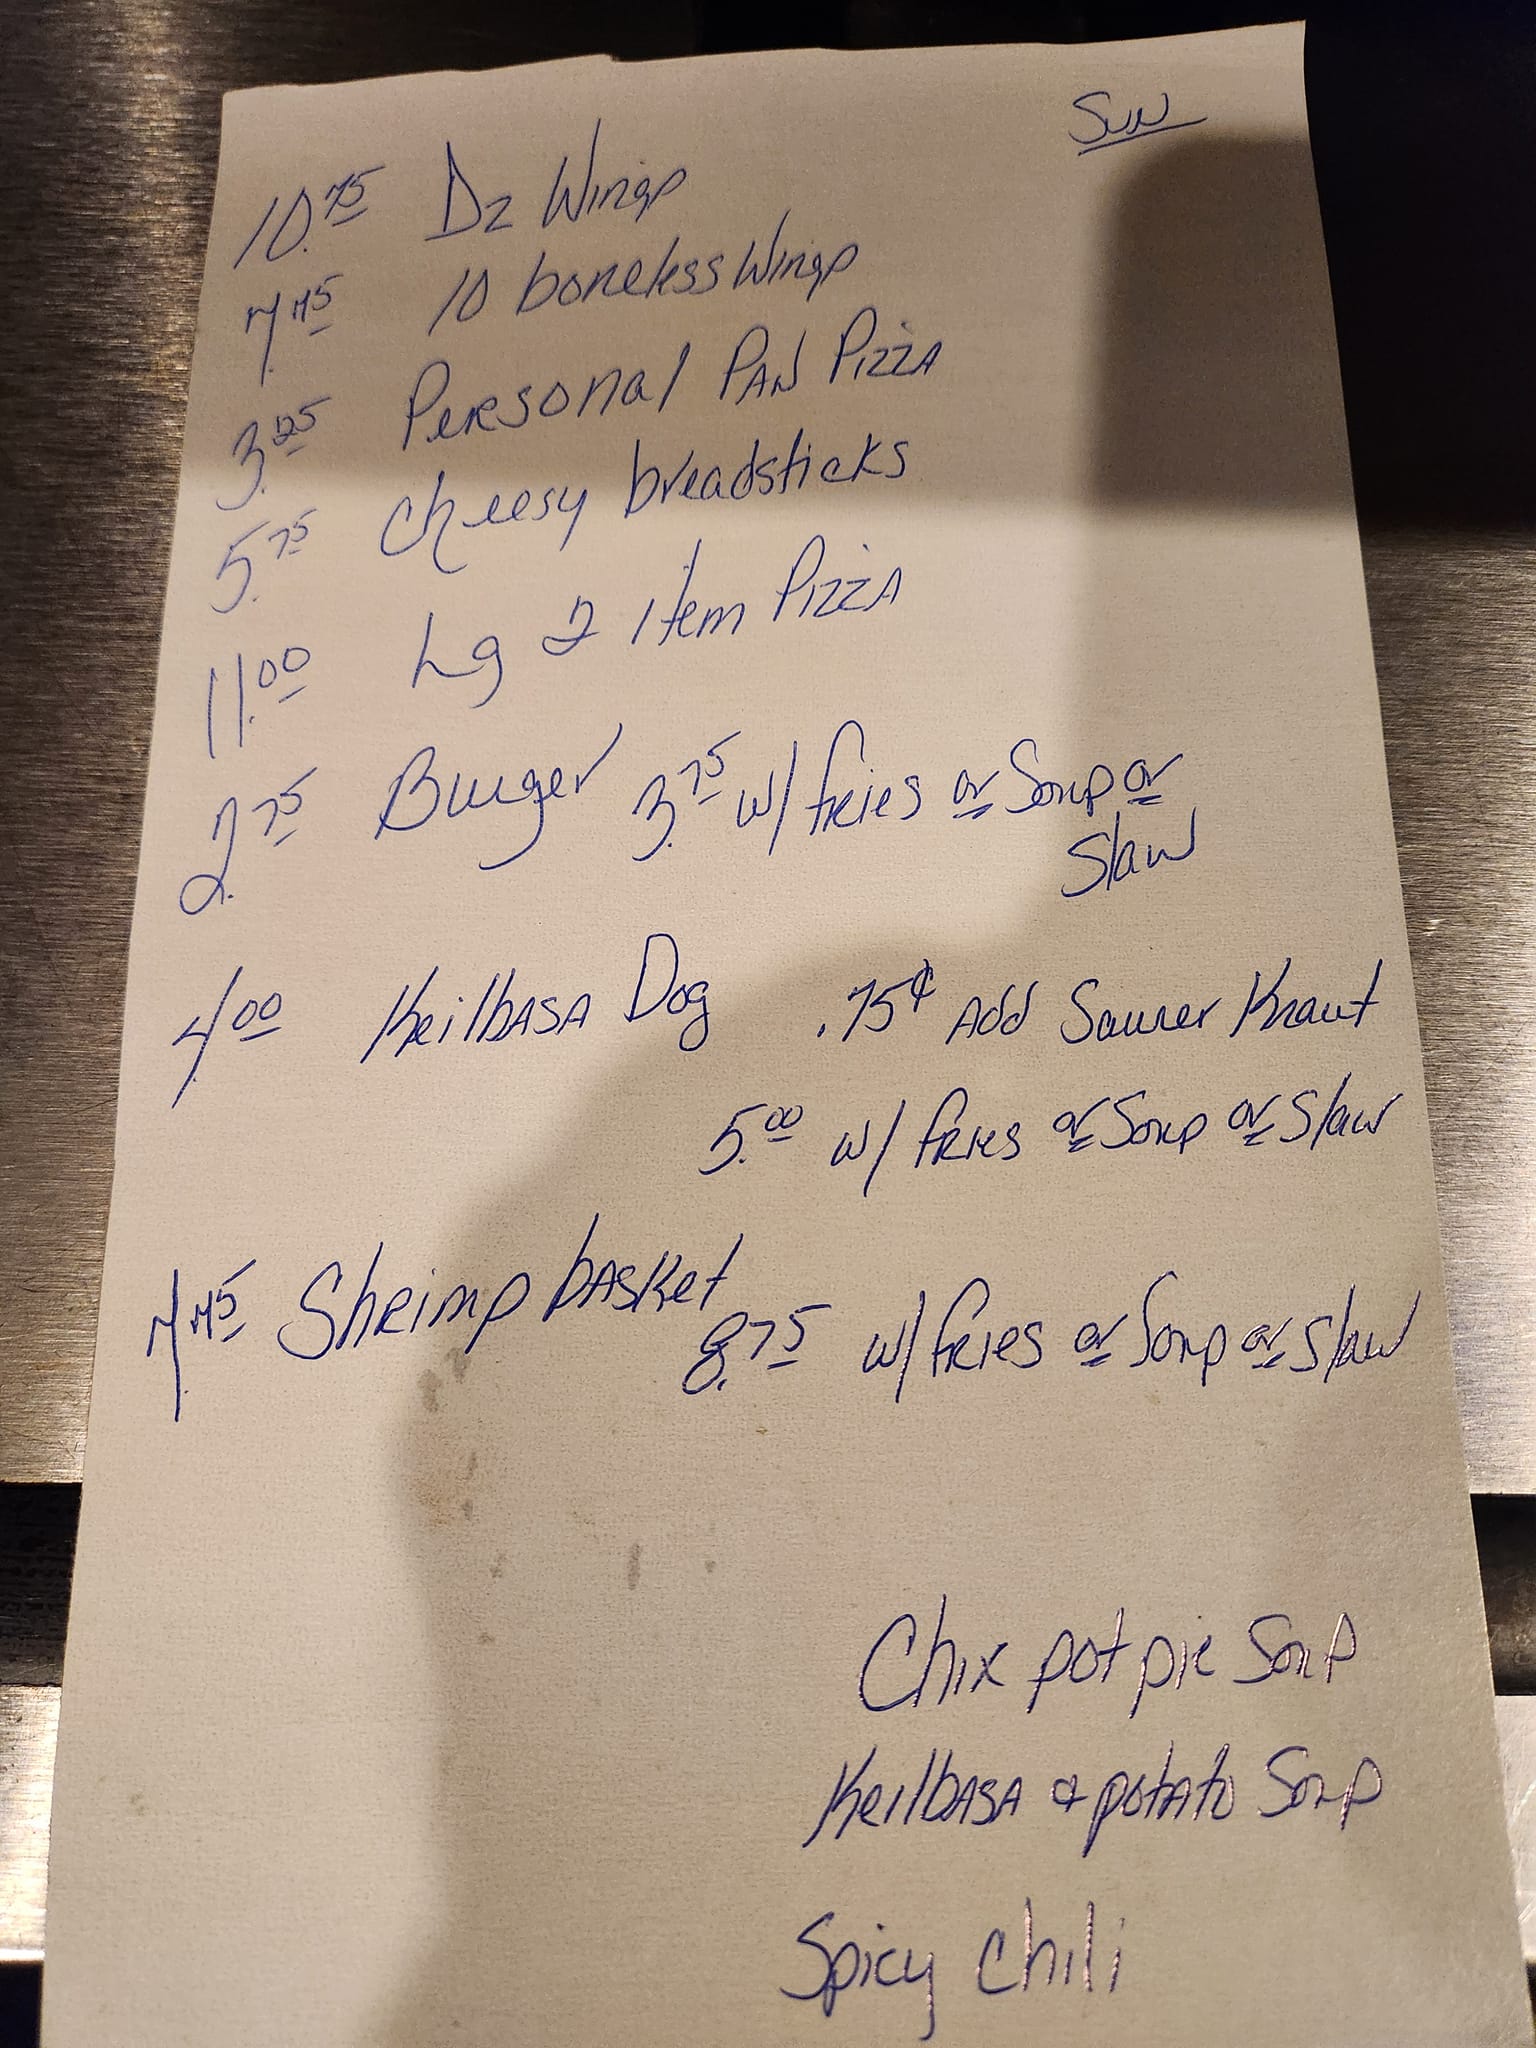 Sun
10.75 Dz Wings
7.75 10 boneless Wings
3.25 Personal PAN PIZZA
5.75 Cheesy breadsticks
11.00 Lg 2 Item PIZZA
2.75 Burger 3.75 w/ fries or Soup or
Slaw
4.00 KeilbASA Dog .75¢ Add Saurer Kraut
5.00 w/ fries or Soup or Slaw
7.75 Shrimp bASKet
8.75 w/ fries or Soup or Slaw
Chix pot pie Soup
KeilbASA & potato Soup
Spicy Chili